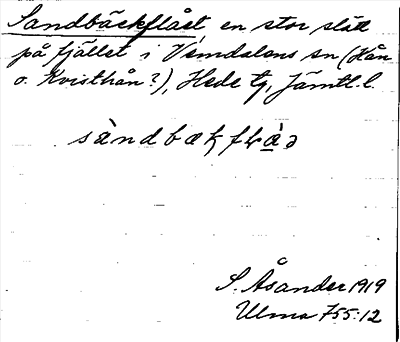 Sandbäckflået, en stor slått
på fjället i Vemdalens sn (Hån
o. Kvisthån?), Hede tg, Jämtl. l.
S. Åsander 1919
Ulma 755:12